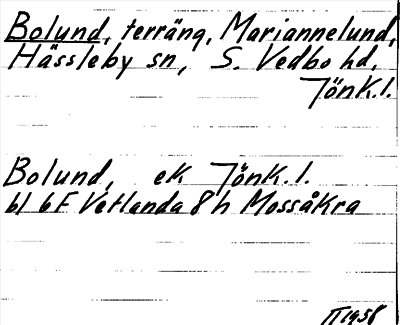 Bolund, terräng, Mariannelund,
Hässleby sn, S. Vedbo hd,
Jönk.l.
Bolund, ek Jönk.l.
bl 6F Vetlanda 8h Mossåkra
II 1958